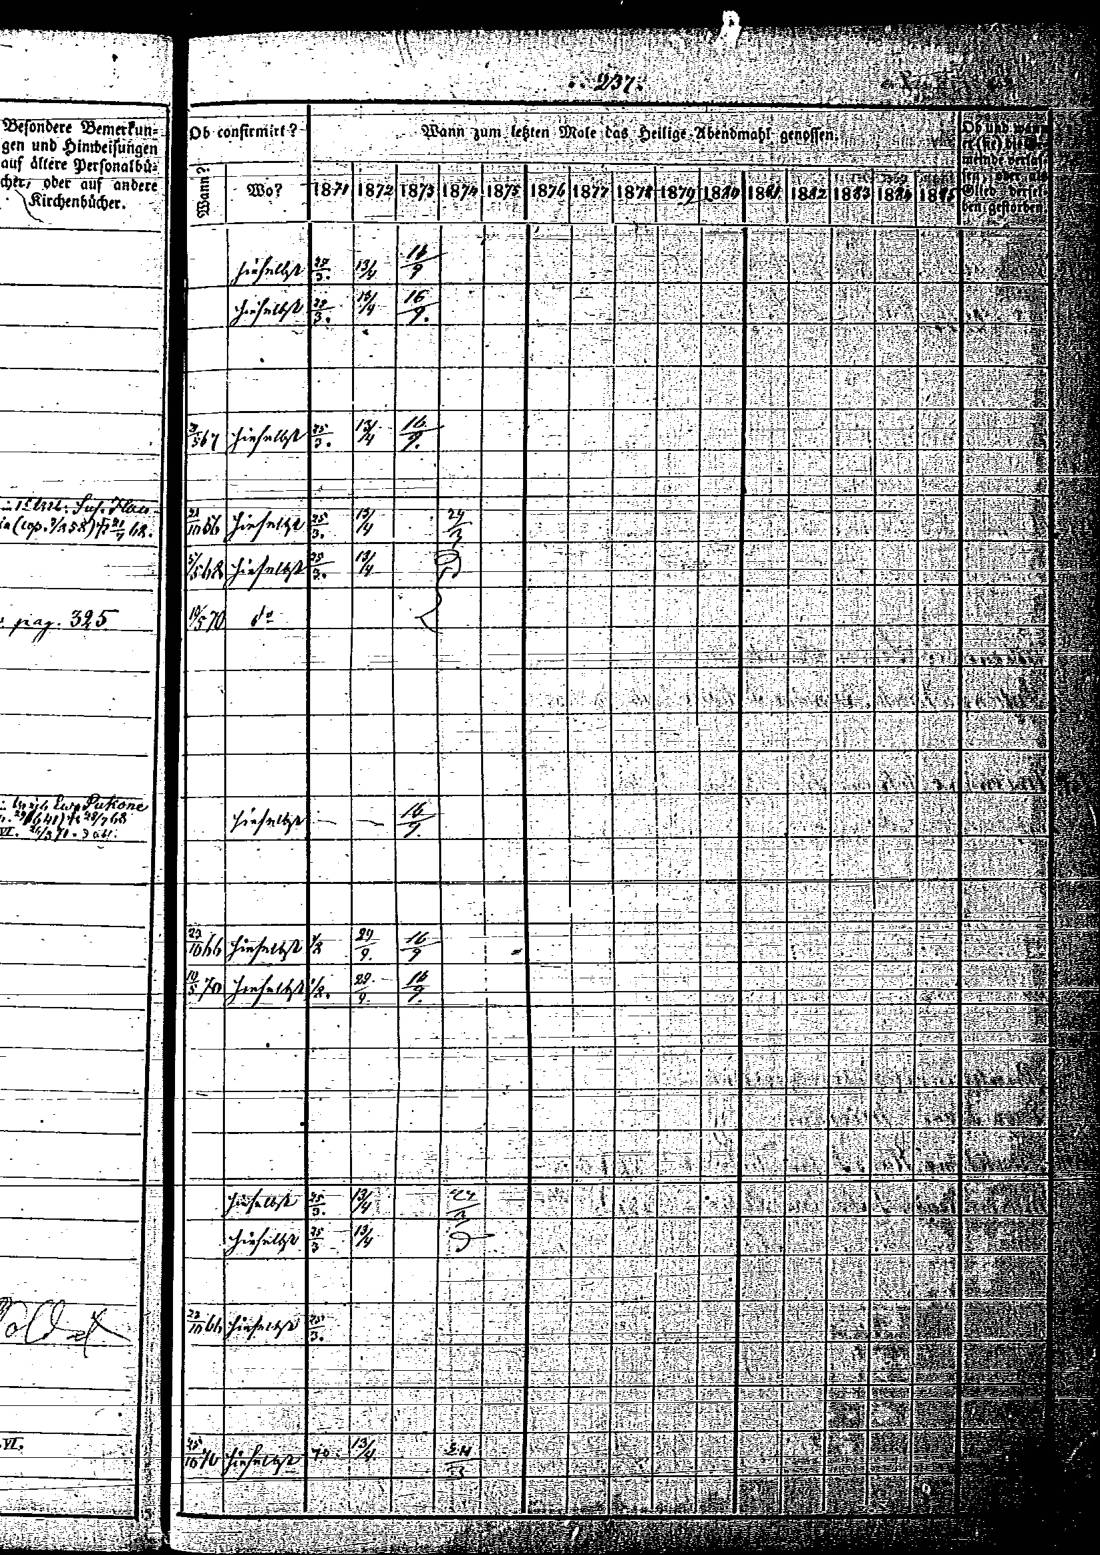 237.
Besondere Bemerkun-
gen und Hinweisungen
auf ältere Personalbü-
cher, oder auf andere
Kirchenbücher.
Ob confirmirt?
Wann?
Wo?
Wann zum letzten Male das Heilige Abendmahl genossen.
1871 1872 1873 1874 1875 1876 1877 1878 1879 1880 1881 1882 1883 1884 1885
Ob und wann
er (sie) die Ge-
meinde verlas-
sen, oder als
Glied dersel-
ben gestorben.
hieselbst 25/3. 13/4 16/9
hieselbst 25/3. 13/4 16/9.
67 hieselbst 25/3. 13/4 16/9.
66 hieselbst 25/3. 13/4 24/3
68 hieselbst 25/3. 13/4
pag. 325 10/5 70 do
hieselbst — — 16/9.
23/10 66 hieselbst 29/9. 16/9
10/5 70 hieselbst 29/9. 16/9.
hieselbst 25/3. 13/4
hieselbst 25/3 13/4
Soldat 23/10 66 hieselbst 25/3.
VI. 70 hieselbst 13/4 24/3